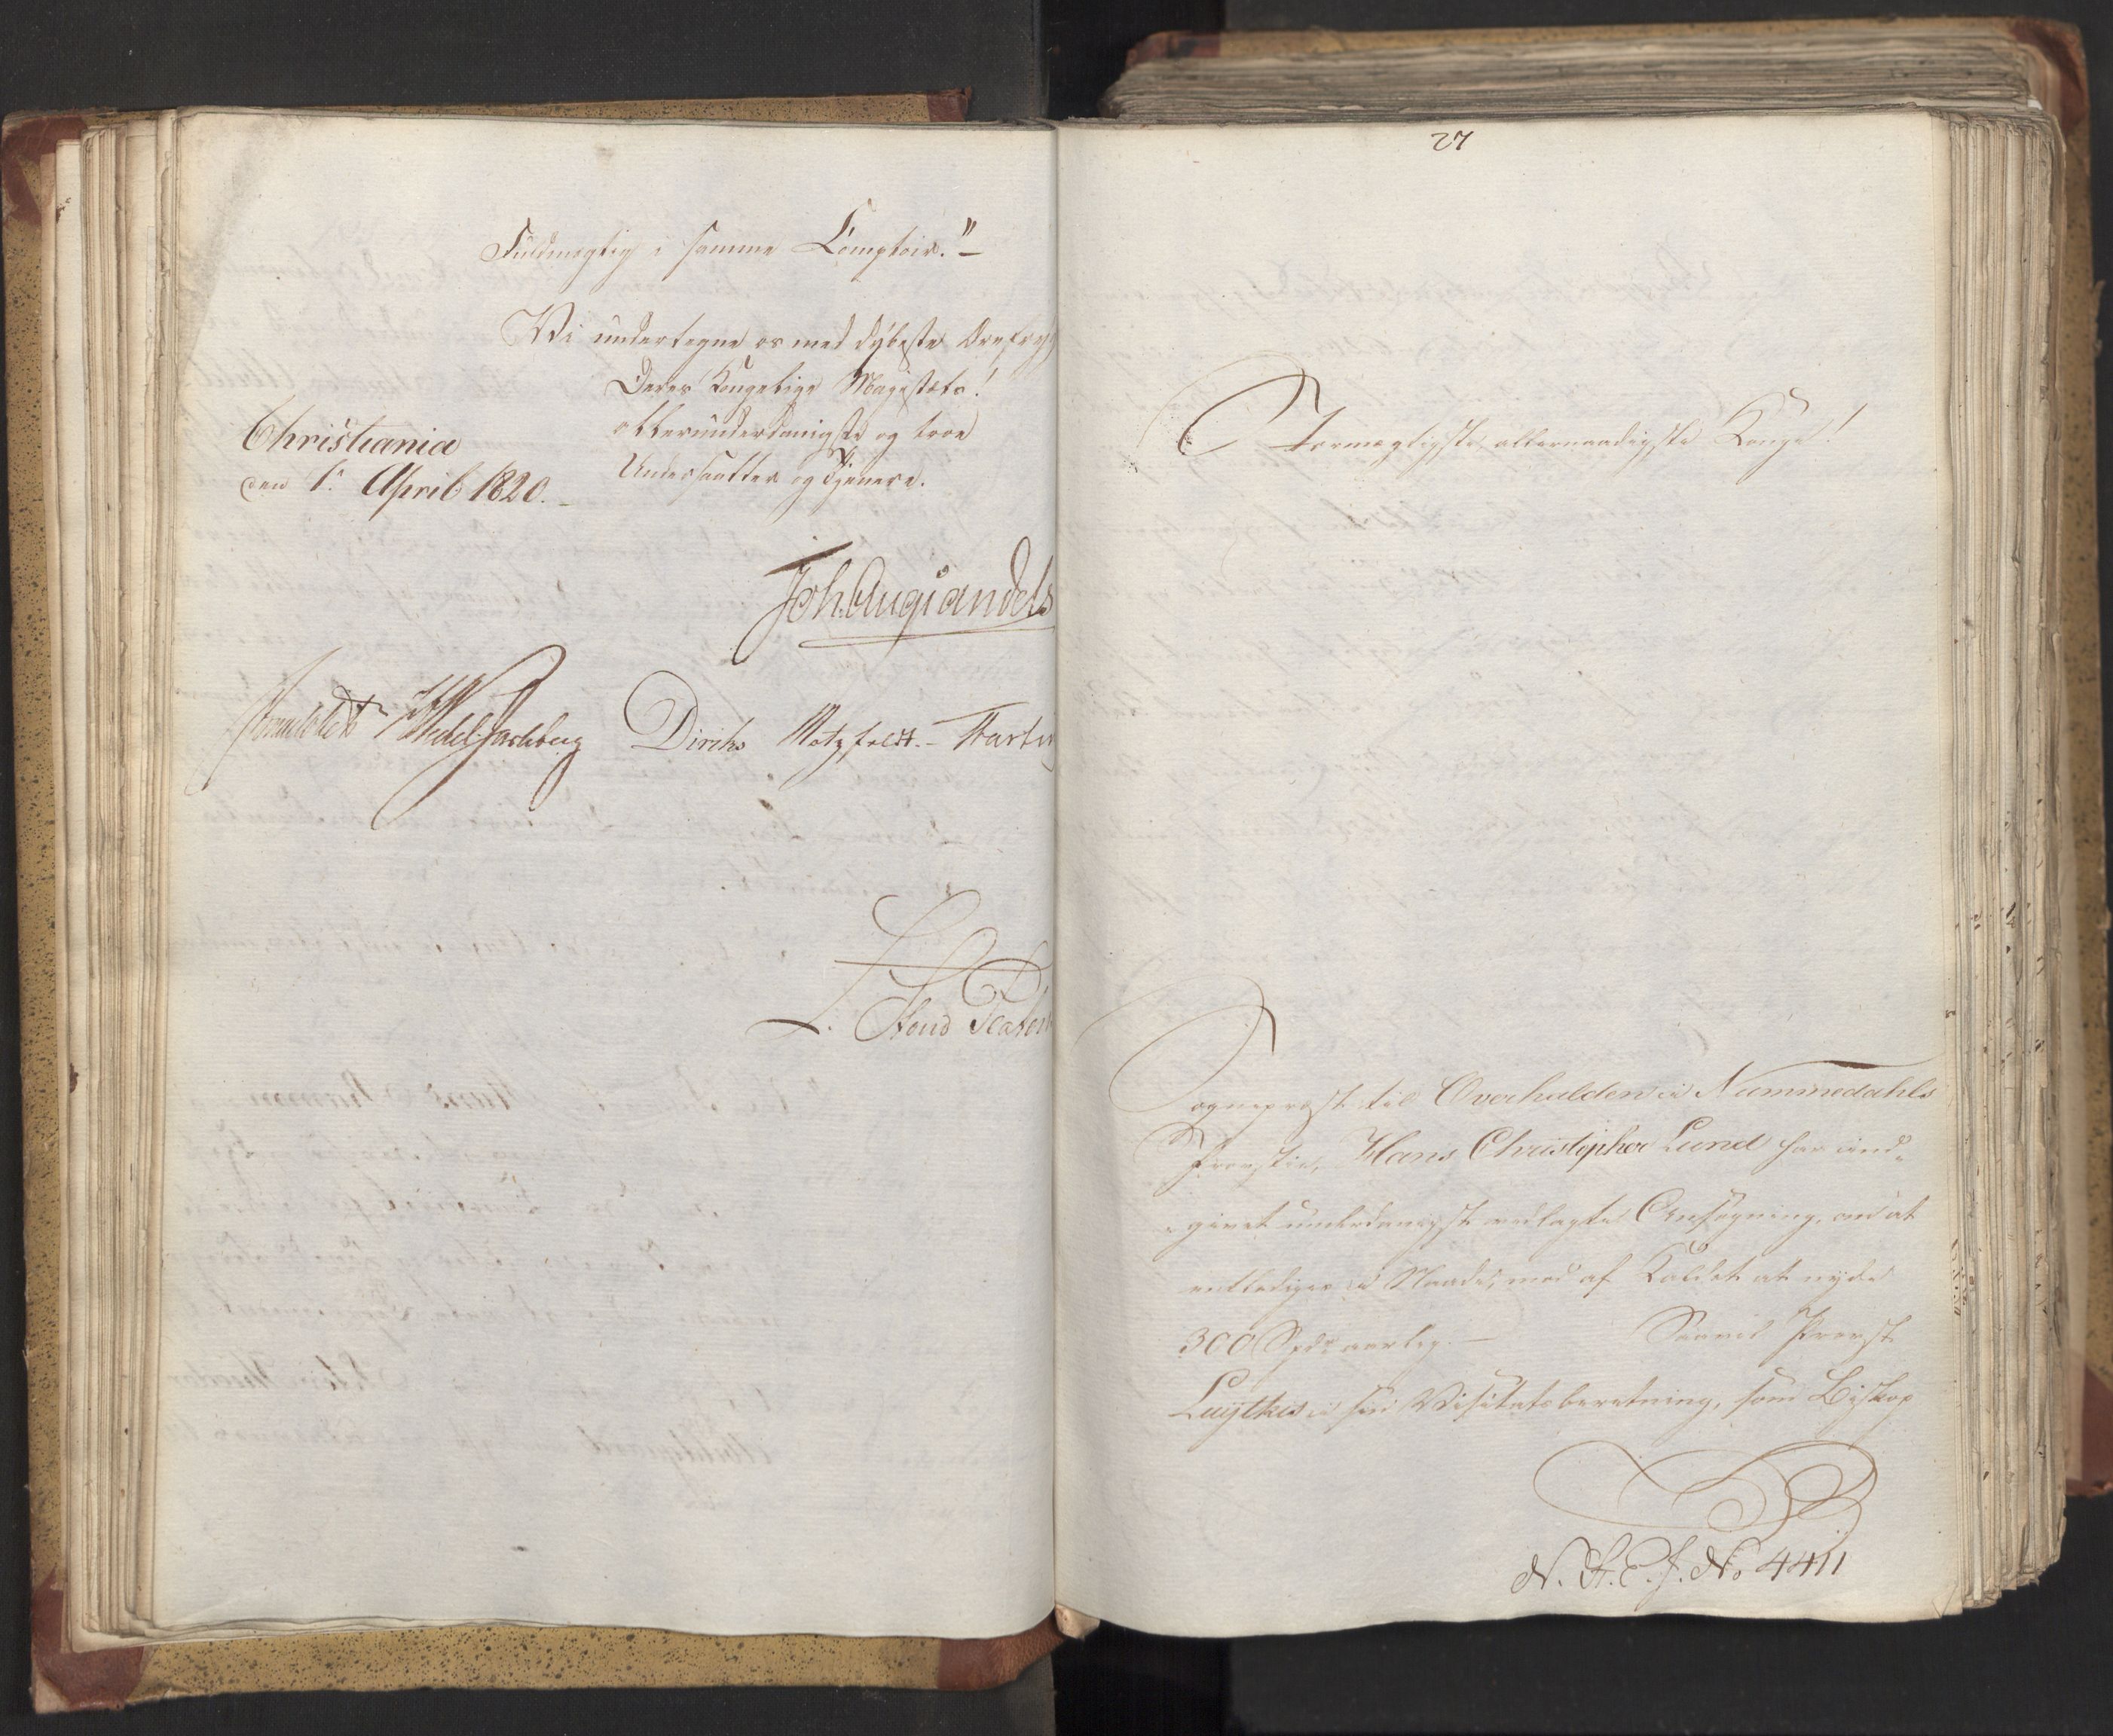 Fuldmægtig i samme Comptoir."-
Vi undertegne os med dybeste Ærefrygt
Deres Kongelige Majestæts!
allerunderdanigste og troe
Undersaatter og Tjenere.
Christiania
den 1. April 1820.-
Joh. Aug Sandels
Sommerhielm HWedelJarlsberg Diriks Motzfeldt.- Fasting
27
Stormægtigste allernaadigste Konge!
Sognepræst til Overhalden i Nummedahls
Provstie, Hans Christopher Lund har ind-
givet underdanigst vedlagte Ansøgning, om at
entlediges i Naade, med af Kaldet at nyde
300 Spd: aarlig.- Saavel Provst
Luytkis i sin Visitatsberetning, som Biskop
N. S. E. J. No 4411